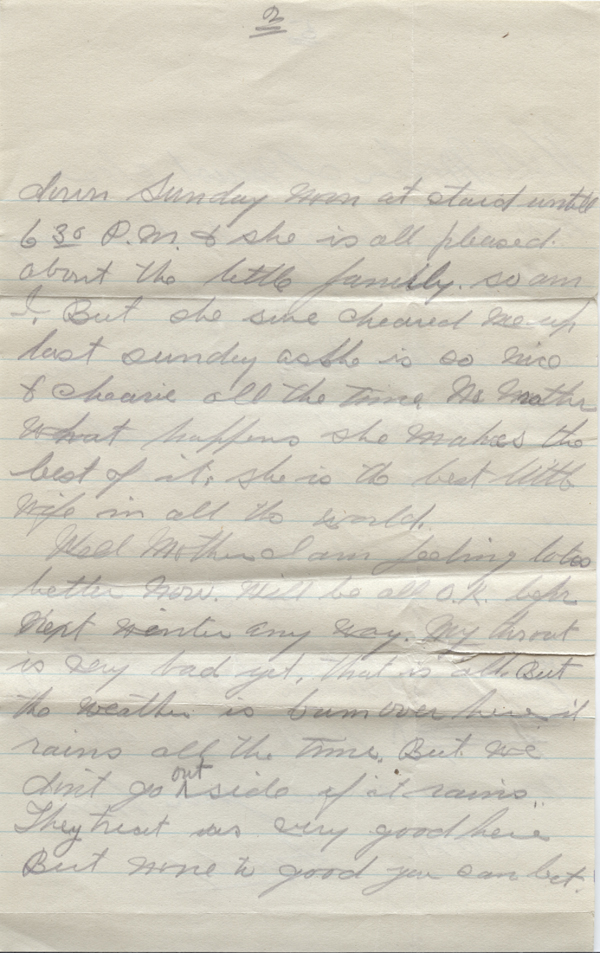 2
down Sunday noon at staid untill
6 30 P.M. & she is all pleased
about the little familly. so am
I. But she sure cheared me up
last sunday as she is so nice
& chearie all the time No Mather
what happens she makes the
best of it, she is the best little
Wife in all the world.
Well Mother I am feeling lots
better now. Will be all O.K. befor
Next winter any way. My throut
is very bad yet, that is all. But
the weather is bum over here it
rains all the time. But we
dont go out side if it rains.
They treat us very good here
But none to good you can bet.